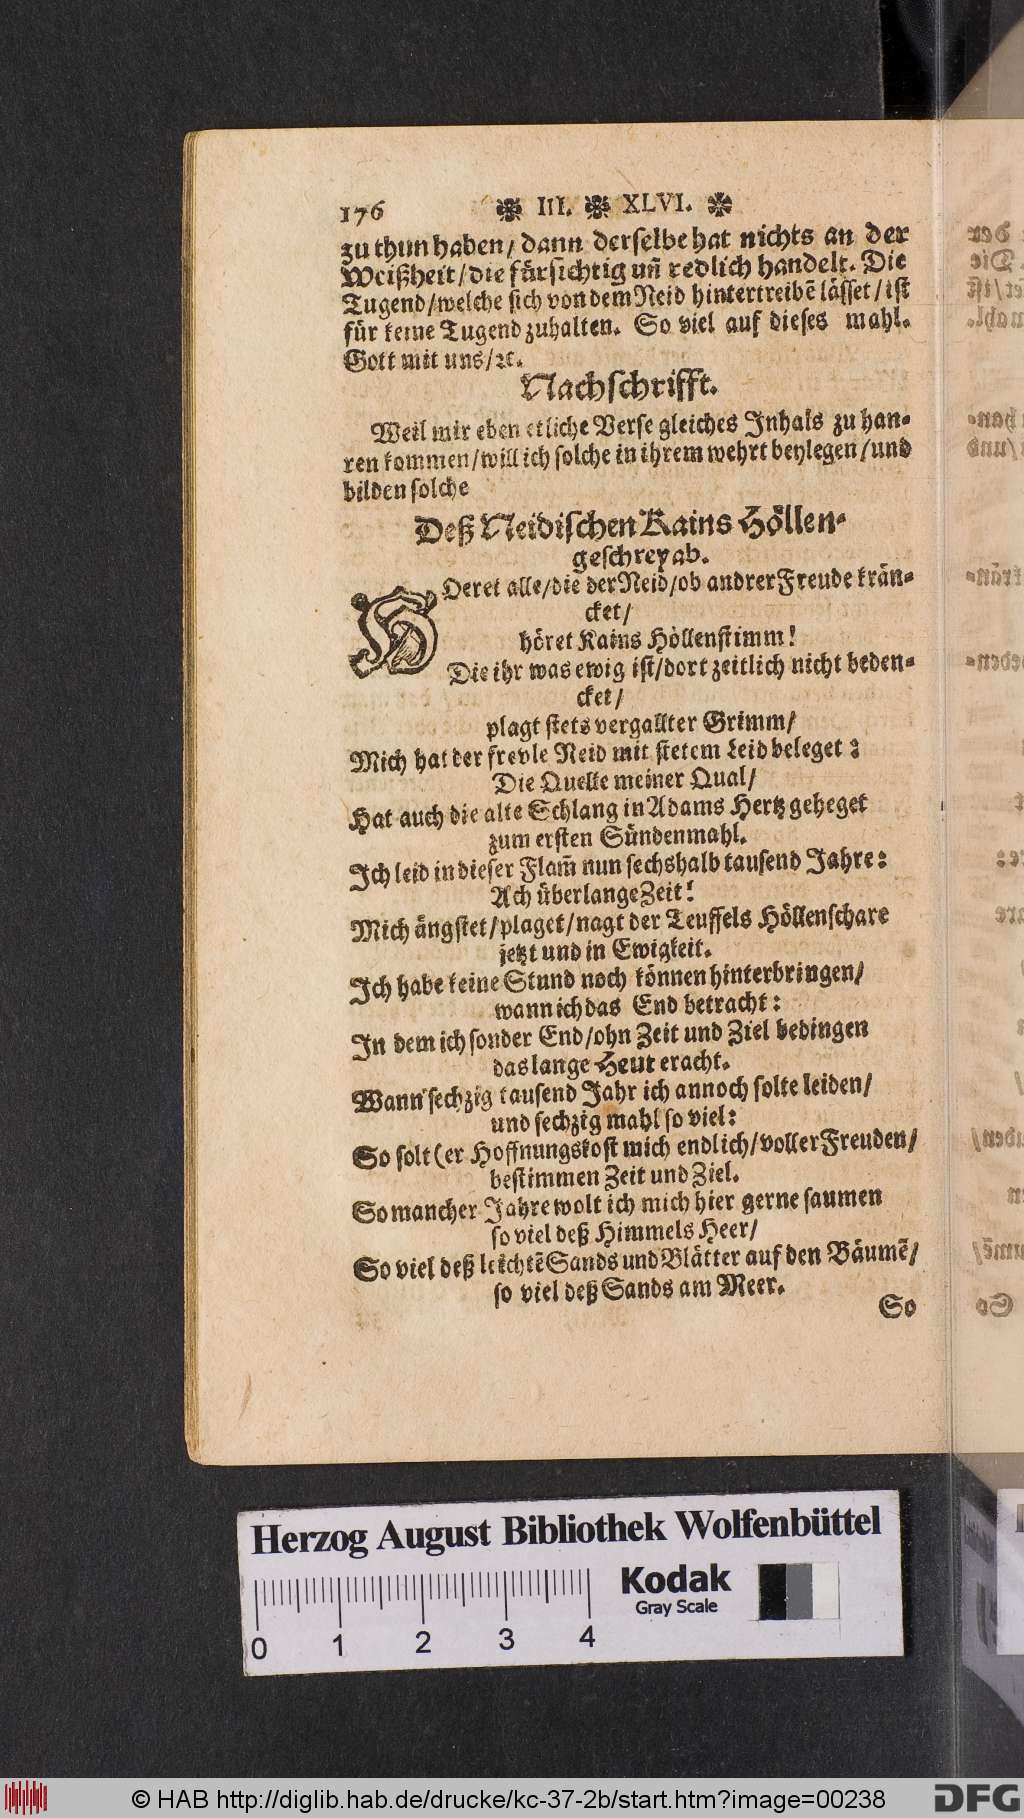 176 ❉ III. ❉ XLVI. ❉
zu thun haben/ dann derselbe hat nichts an der
Weißheit/die fürsichtig uñ redlich handelt. Die
Tugend/welche sich von dem Neid hintertreibẽ lässet/ist
für keine Tugend zuhalten. So viel auf dieses mahl.
Gott mit uns/ꝛc.
Nachschrifft.
Weil mir eben etliche Verse gleiches Inhals zu han-
ren kommen/will ich solche in ihrem wehrt beylegen/und
bilden solche
Deß Neidischen Kains Höllen-
geschrey ab.
HOeret alle/die der Neid/ob andrer Freude krän-
cket/
höret Kains Höllenstimm!
Die ihr was ewig ist/dort zeitlich nicht beden-
cket/
plagt stets vergallter Grimm/
Mich hat der frevle Neid mit stetem Leid beleget:
Die Quelle meiner Qual/
Hat auch die alte Schlang in Adams Hertz geheget
zum ersten Sündenmahl.
Ich leid in dieser Flam̃ nun sechshalb tausend Jahre:
Ach überlange Zeit!
Mich ängstet/plaget/nagt der Teuffels Höllenschare
jetzt und in Ewigkeit.
Ich habe keine Stund noch können hinterbringen/
wann ich das End betracht:
In dem ich sonder End/ohn Zeit und Ziel bedingen
das lange Heut eracht.
Wann sechzig tausend Jahr ich annoch solte leiden/
und sechzig mahl so viel:
So solt (er Hoffnungskost mich endlich/voller Freuden/
bestimmen Zeit und Ziel.
So mancher Jahre wolt ich mich hier gerne saumen
so viel deß Himmels Heer/
So viel deß leichtẽ Sands und Blätter auf den Bäumẽ/
so viel deß Sands am Meer.
So
Herzog August Bibliothek Wolfenbüttel
Kodak
Gray Scale
0 1 2 3 4
© HAB http://diglib.hab.de/drucke/kc-37-2b/start.htm?image=00238
DFG